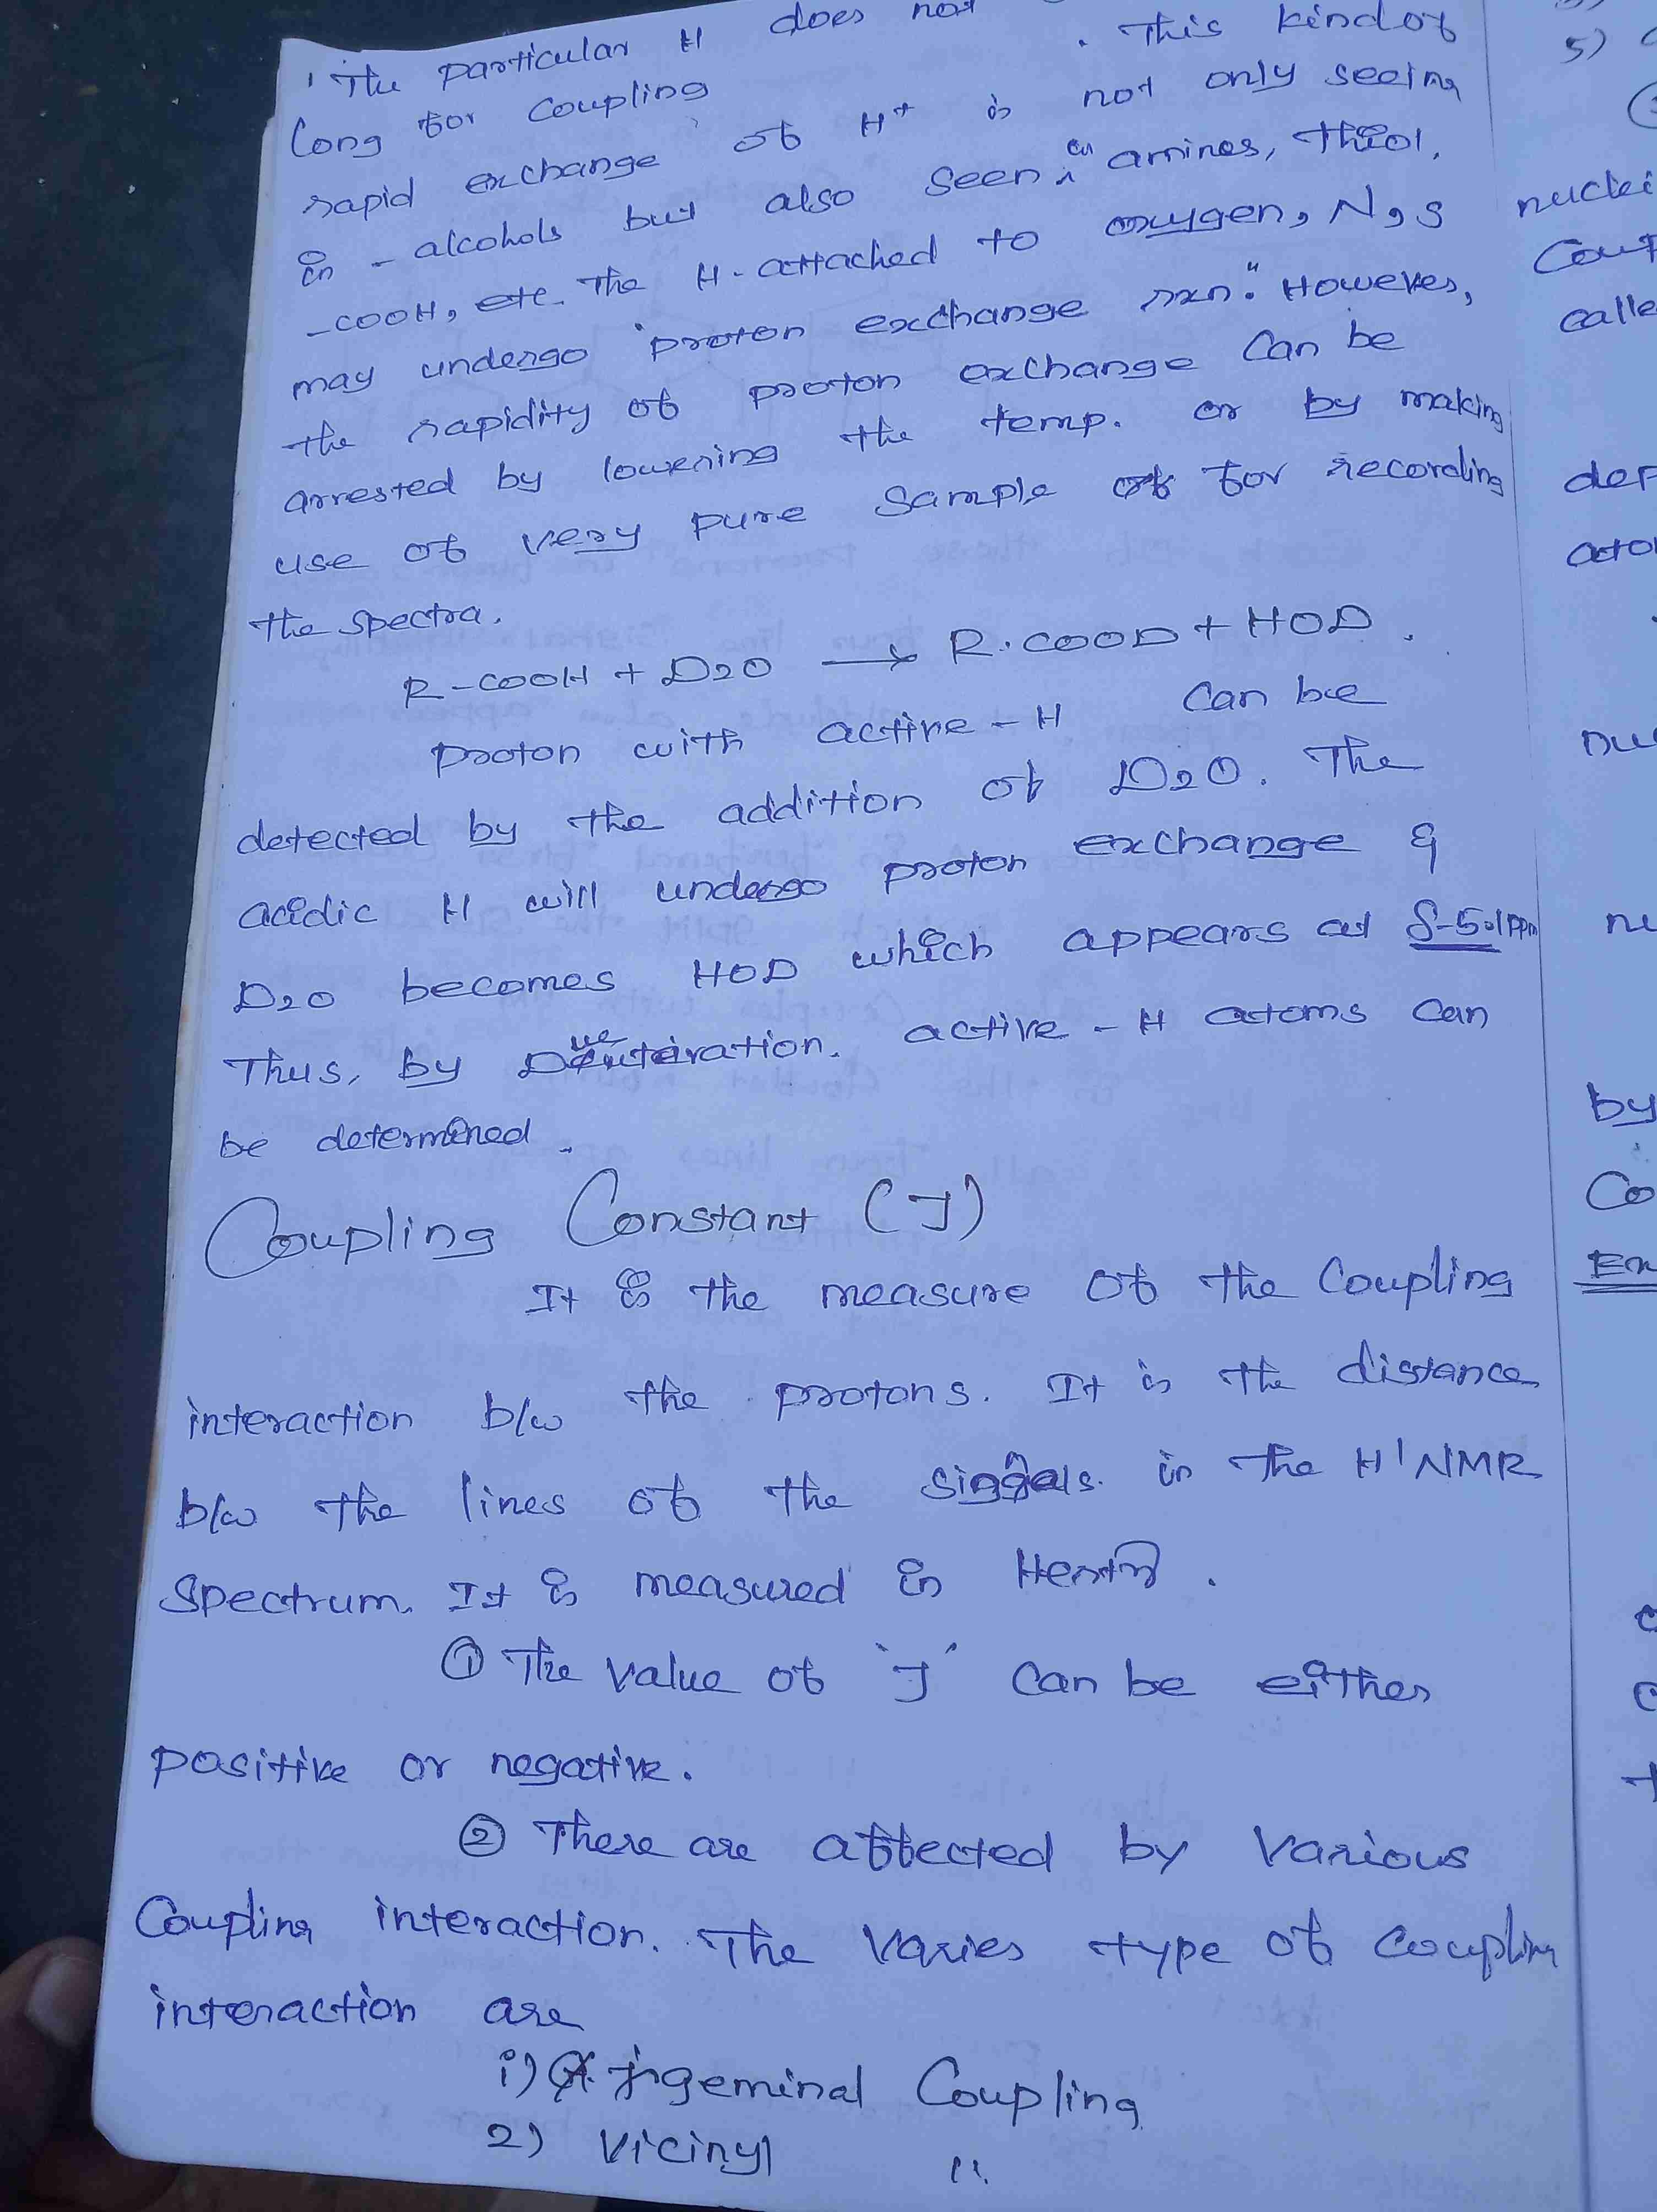 The particular H does not
long for coupling . This kind of
rapid exchange of H+ is not only seeing
in - alcohols but also seen in amines, thiol,
-COOH, etc. The H-attached to oxygen, N, S
may undergo "proton exchange rxn." However,
the rapidity of proton exchange can be
arrested by lowering the temp. or by making
use of very pure sample for recording
the spectra.
R-COOH + D2O → R.COOD + HOD.
proton with active - H can be
detected by the addition of D2O. The
acidic H will undergo proton exchange &
D2O becomes HOD which appears at δ-5.1ppm
Thus, by Deuteration, active - H atoms can
be determined.
Coupling Constant (J)
It is the measure of the coupling
interaction b/w the protons. It is the distance
b/w the lines of the signals. in the H1NMR
Spectrum. It is measured in
① The value of 'J' can be either
positive or negative.
② There are affected by various
Coupling interaction. The varies type of coupling
interaction are
i) geminal Coupling
2) Vicinyl "
5)
nuclei
Coup
calle
dep
ato
nu
nu
by
Co
Ex